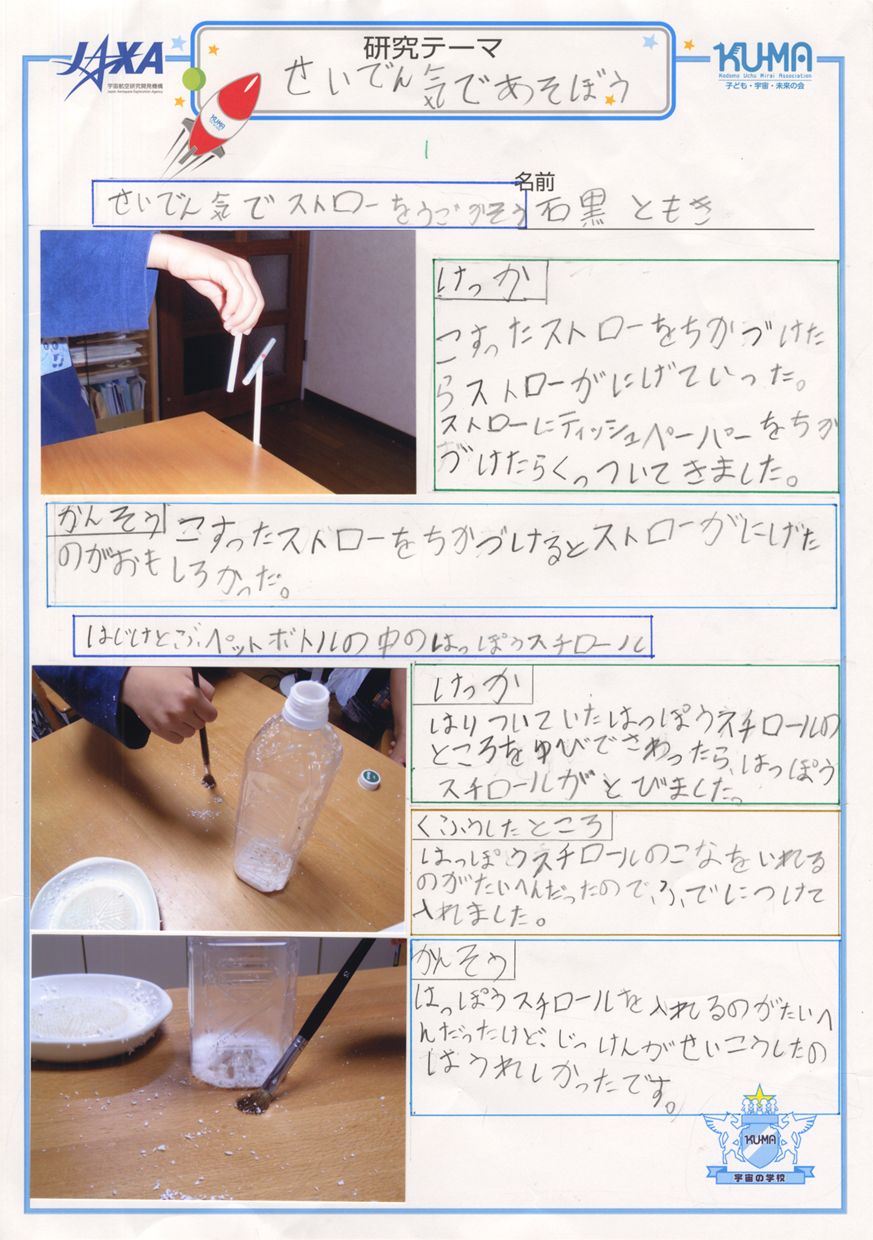 JAXA
宇宙航空研究開発機構
Japan Aerospace Exploration Agency
研究テーマ
せいでん気であそぼう
KU-MA
Kodomo Uchu Mirai Association
子ども・宇宙・未来の会
KU-MA
1
せいでん気でストローをうごかそう
名前
石黒 ともき
けっか
こすったストローをちかづけた
らストローがにげていった。
ストローにティッシュペーパーをちか
づけたらくっついてきました。
かんそう
こすったストローをちかづけるとストローがにげた
のがおもしろかった。
はじけとぶ、ペットボトルの中のはっぽうスチロール
けっか
はりついていたはっぽうスチロールの
ところをゆびでさわったら、はっぽう
スチロールがとびました。
くふうしたところ
はっぽうスチロールのこなをいれる
のがたいへんだったので、ふでにつけて
入れました。
かんそう
はっぽうスチロールを入れるのがたいへ
んだったけど、じっけんがせいこうしたの
はうれしかったです。
KU-MA
宇宙の学校